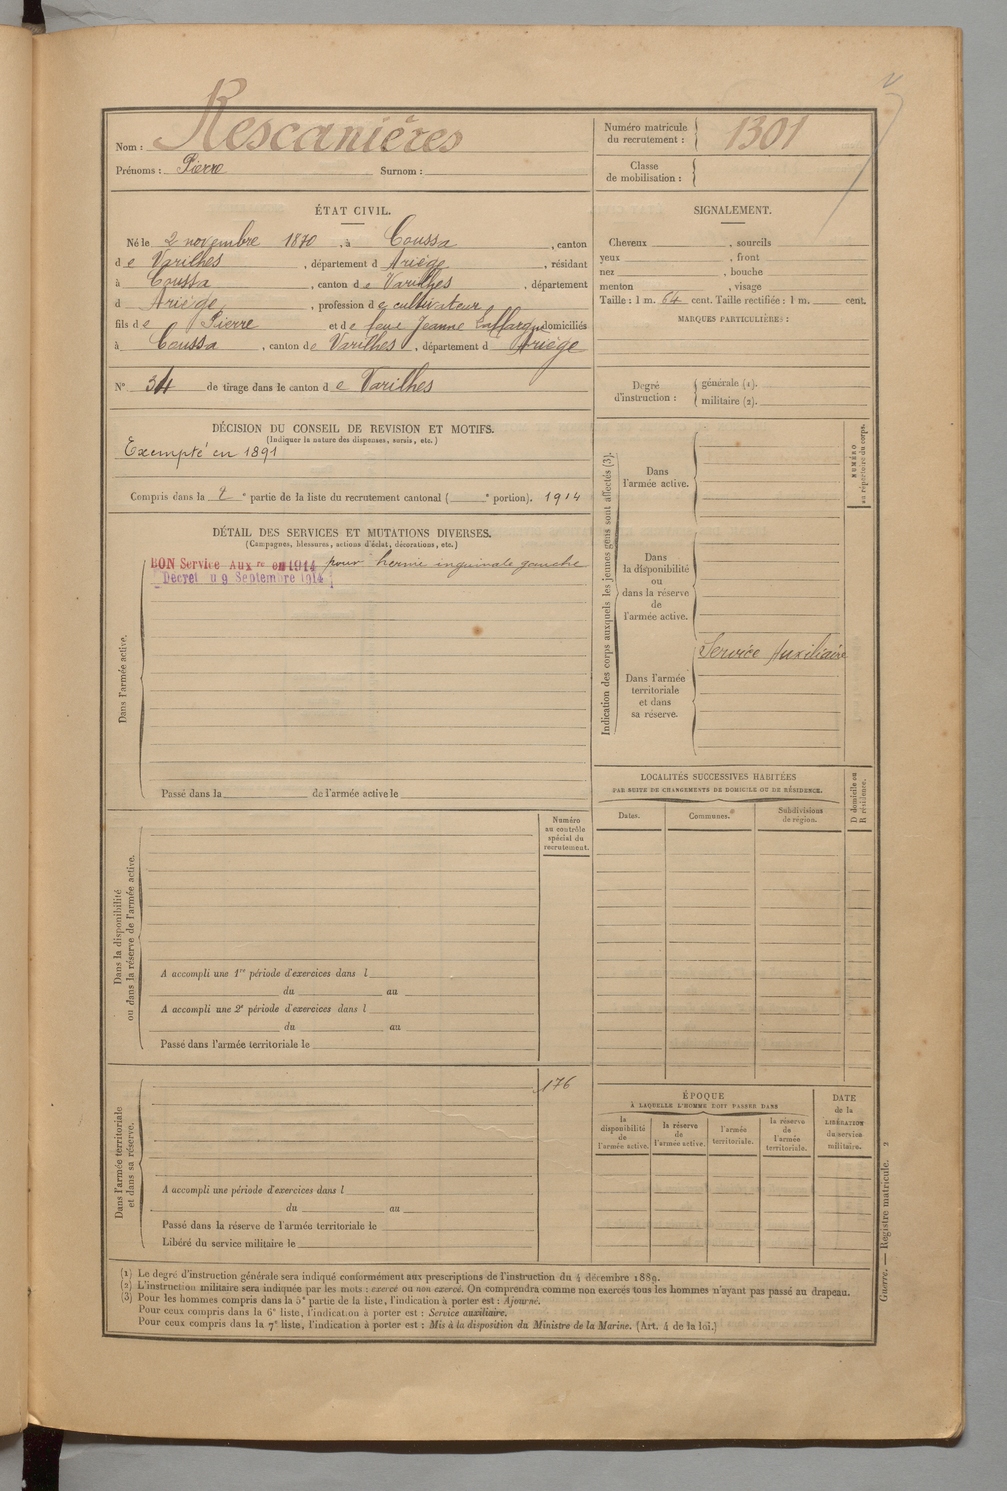 Nom : Rescanières
Prénoms : Pierre Surnom :
Numéro matricule
du recrutement : 1301
Classe
de mobilisation :
ÉTAT CIVIL.
Né le 2 novembre 1870, à Coussa, canton
de Varilhes, département d Ariège, résidant
à Coussa, canton de Varilhes, département
d Ariège, profession de cultivateur
fils de Pierre et de feue Jeanne domiciliés
à Coussa, canton de Varilhes, département d Ariège
N° 34 de tirage dans le canton de Varilhes
SIGNALEMENT.
Cheveux , sourcils
yeux , front
nez , bouche
menton , visage
Taille : 1 m. 64 cent. Taille rectifiée : 1 m. cent.
MARQUES PARTICULIÈRES :
Degré
d'instruction :
générale (1).
militaire (2).
DÉCISION DU CONSEIL DE REVISION ET MOTIFS.
(Indiquer la nature des dispenses, sursis, etc.)
Exempté en 1891
Compris dans la e partie de la liste du recrutement cantonal ( e portion). 1914
DÉTAIL DES SERVICES ET MUTATIONS DIVERSES.
(Campagnes, blessures, actions d'éclat, décorations, etc.)
BON Service Auxre en 1914 pour hernie inguinale gauche
Décret u 9 Septembre 1914
Dans l'armée active.
Passé dans la de l'armée active le
Indication des corps auxquels les jeunes gens sont affectés (3).
Dans
l'armée active.
Dans
la disponibilité
ou
dans la réserve
de
l'armée active.
Service Auxiliaire
Dans l'armée
territoriale
et dans
sa réserve.
NUMÉRO
au répertoire du corps.
LOCALITÉS SUCCESSIVES HABITÉES
PAR SUITE DE CHANGEMENTS DE DOMICILE OU DE RÉSIDENCE.
Dates. Communes. Subdivisions
de région.
D domicile ou
R résidence.
Numéro
au contrôle
spécial du
recrutement.
Dans la disponibilité
ou dans la réserve de l'armée active.
A accompli une 1re période d'exercices dans l
du au
A accompli une 2e période d'exercices dans l
du au
Passé dans l'armée territoriale le
176
Dans l'armée territoriale
et dans sa réserve.
A accompli une période d'exercices dans l
du au
Passé dans la réserve de l'armée territoriale le
Libéré du service militaire le
ÉPOQUE
À LAQUELLE L'HOMME DOIT PASSER DANS
la
disponibilité
de
l'armée active.
la réserve
de
l'armée active.
l'armée
territoriale.
la réserve
de
l'armée
territoriale.
DATE
de la
LIBÉRATION
du service
militaire.
(1) Le degré d'instruction générale sera indiqué conformément aux prescriptions de l'instruction du 4 décembre 1889.
(2) L'instruction militaire sera indiquée par les mots : exercé ou non exercé. On comprendra comme non exercés tous les hommes n'ayant pas passé au drapeau.
(3) Pour les hommes compris dans la 5e partie de la liste, l'indication à porter est : Ajourné.
Pour ceux compris dans la 6e liste, l'indication à porter est : Service auxiliaire.
Pour ceux compris dans la 7e liste, l'indication à porter est : Mis à la disposition du Ministre de la Marine. (Art. 4 de la loi.)
Guerre. — Registre matricule. 2